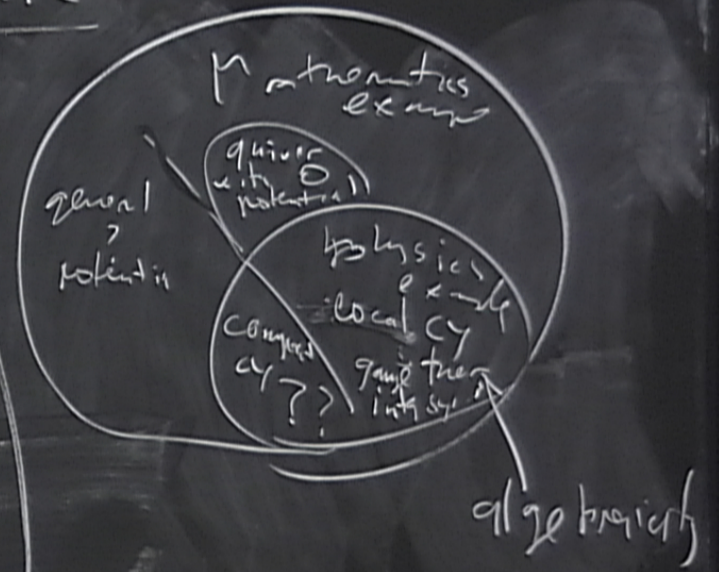 Mathematics
example
quiver
with 0
potential
general
?
potential
physics
example
local CY
compact
CY
??
gauge theory
int sys
algebraicity